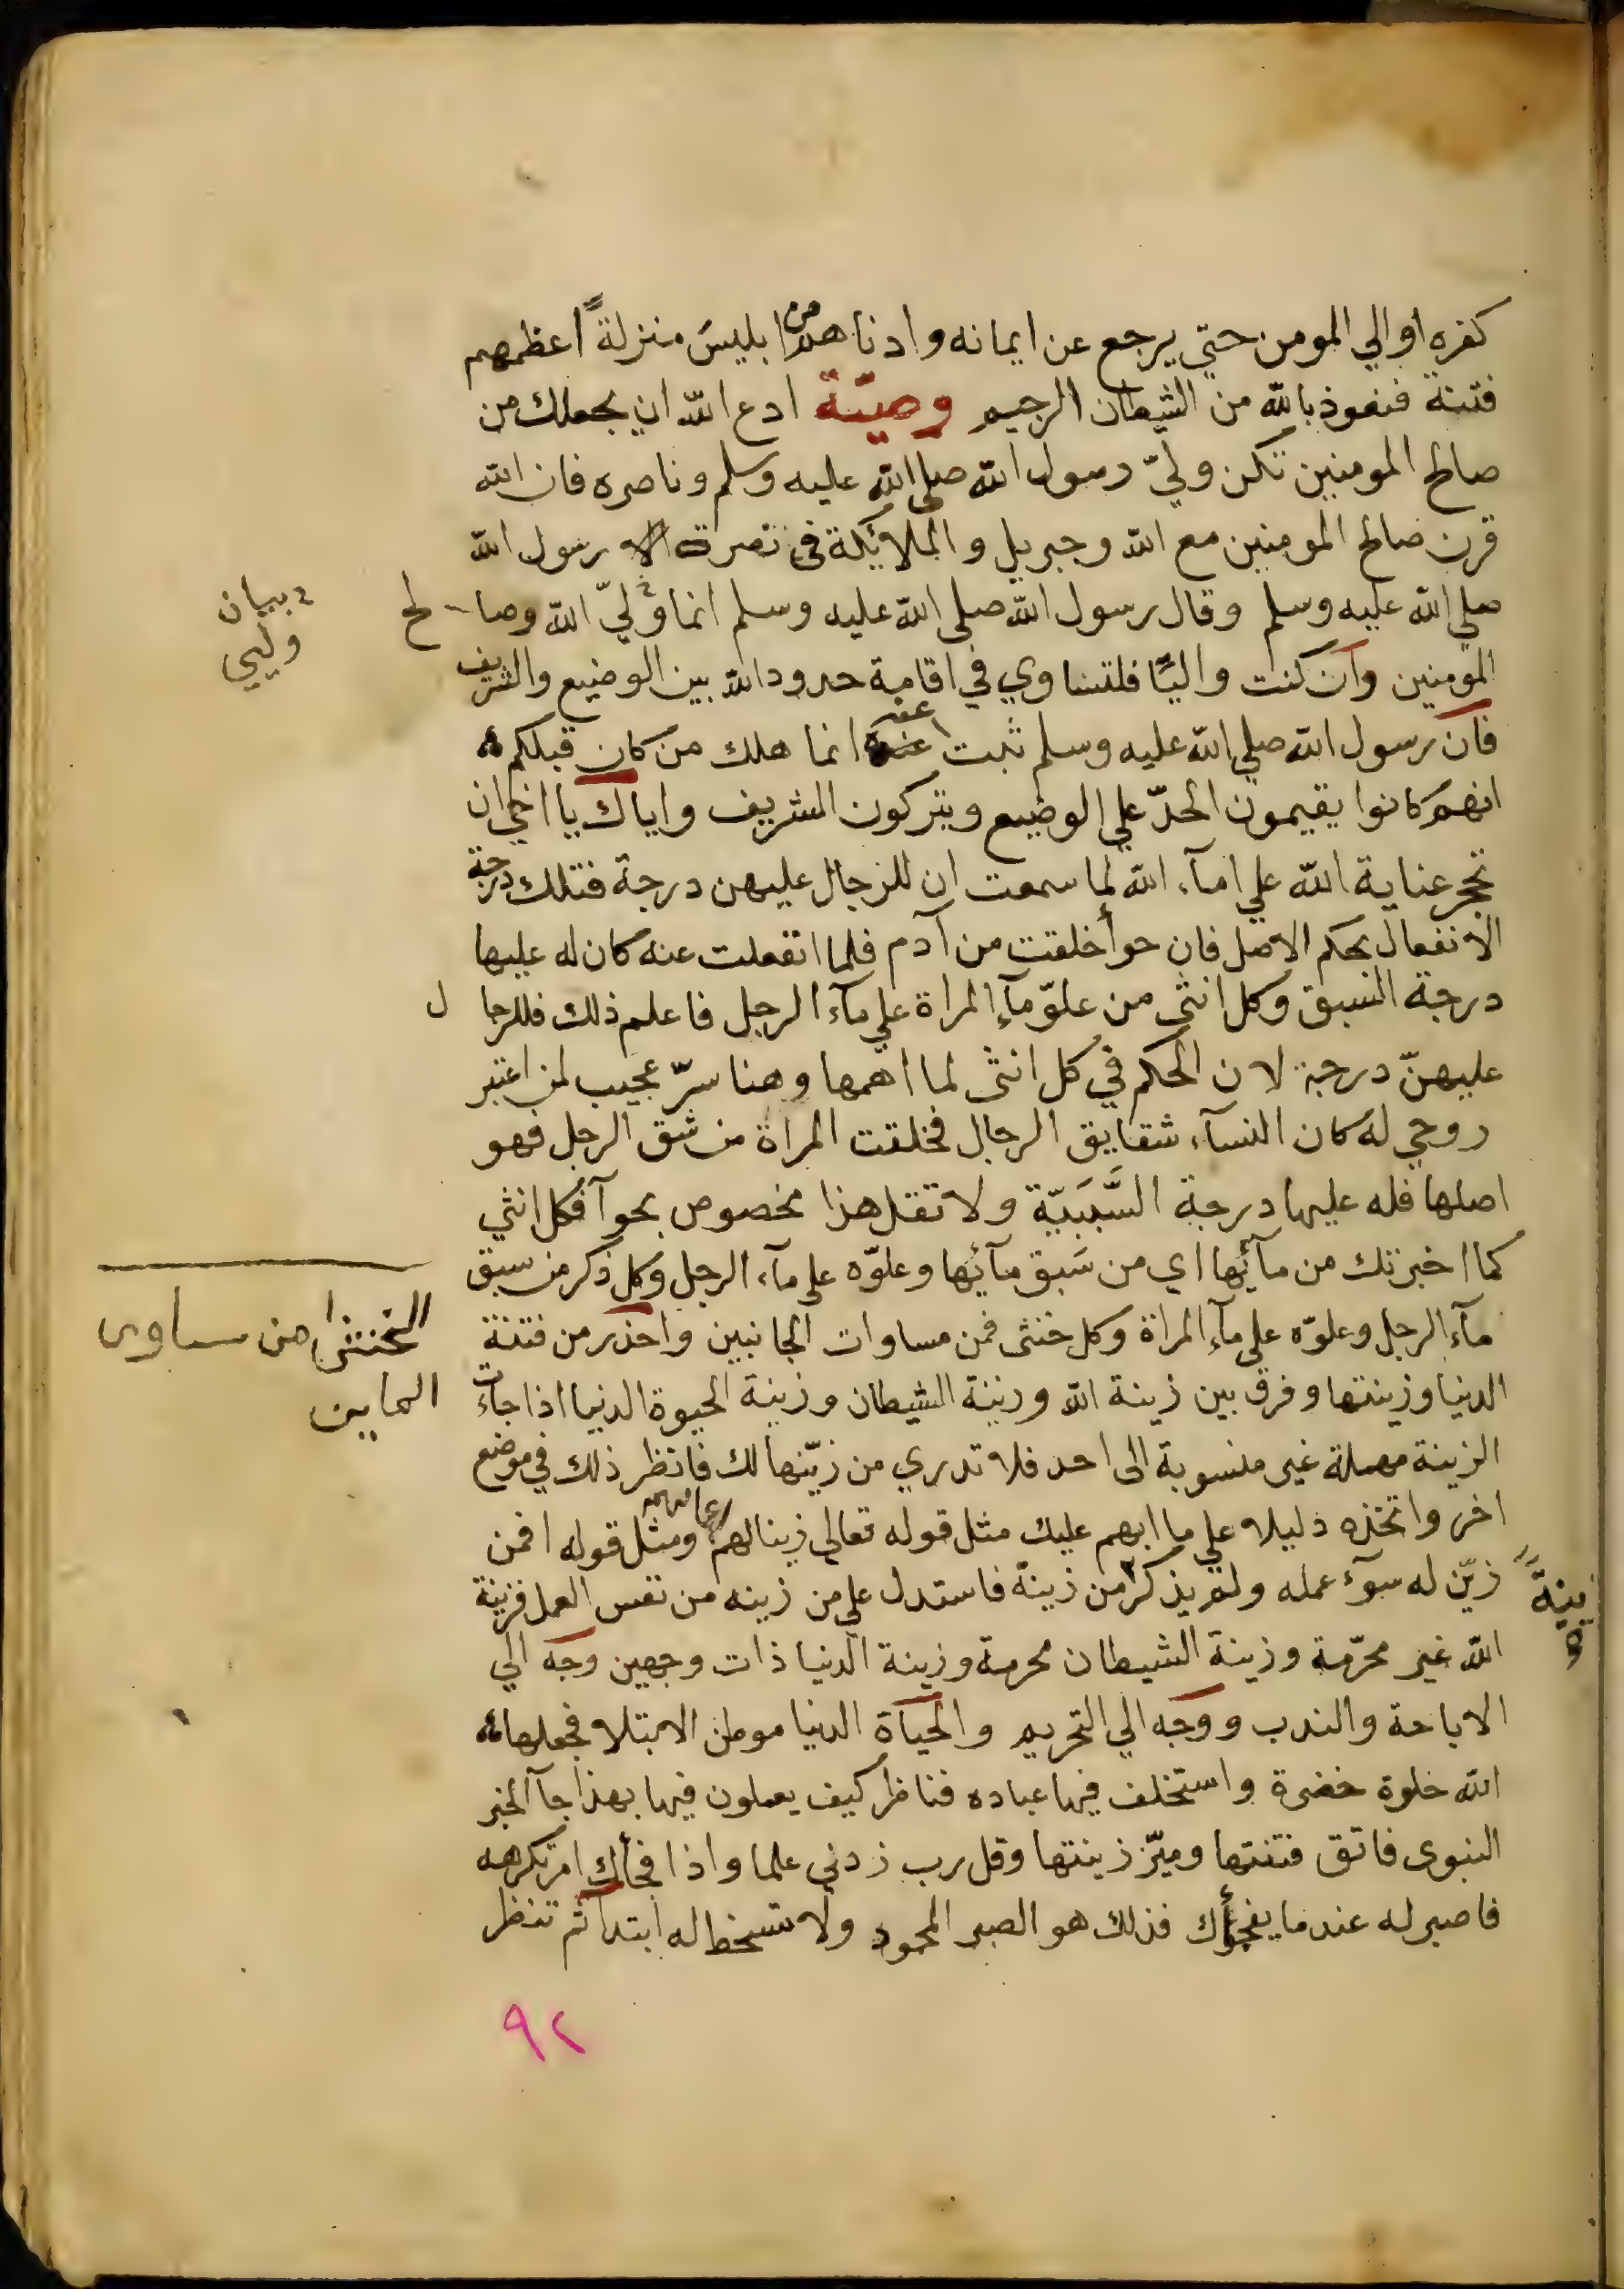 كفره او الي المومن حتي يرجع عن ايمانه وادناهم من ابليسَ منزلةً اعظمهم
فتنة فنعوذ بالله من الشيطان الرجيم وصيّة ادع الله ان يجعلك من
صالح المومنين تكن وليّ رسول الله صلي الله عليه وسلم وناصره فان الله
قرن صالح المومنين مع الله وجبريل والملائكة في نصرة رسول الله
صلي الله عليه وسلم وقال رسول الله صلي الله عليه وسلم انما وليّ الله وصا لح
بيان
وليي
المومنين وان كنت واليًا فلتساوي في اقامة حدود الله بين الوضيع والشريف
فان رسول الله صلي الله عليه وسلم ثبت عنه انما هلك من كان قبلكم
انهم كانوا يقيمون الحدّ علي الوضيع ويتركون الشريف واياك يا اخي ان
تحجر عناية الله علي امآء الله لما سمعت ان للرجال عليهن درجة فتلك درجة
الانفعال بحكم الاصل فان حوأ خلقت من آدم فلما انفعلت عنه كان له عليها
درجة السبق وكل انثي من علوّ مآء المراة علي مآء الرجل فاعلم ذلك فللرجا ل
عليهنّ درجة لان الحكم في كل انثى لما اهمها وهنا سرّ عجيب لمن اعتبر
روحي له كان النسآء شقايق الرجال فخلقت المراة من شق الرجل فهو
اصلها فله عليها درجة السَّبَبيّة ولا تقل هذا مخصوص بحوآ فكل انثي
كما اخبرتك من مآئها اي من سَبق مآئها وعلوّه علي مآء الرجل وكل ذكر من سبق
مآء الرجل وعلوّه علي مآء المراة وكل خنثى فمن مساوات الجانبين واحذر من فتنة
الخنثا من ساوى
المايين
الدنيا وزينتها وفرق بين زينة الله وزينة الشيطان وزينة الحيوة الدنيا اذا جاءت
الزينة مهملة غير منسوبة الى احد فلا تدري من زيّنها لك فانظر ذلك في موضع
اخر واتخذه دليلا علي ما ابهم عليك مثل قوله تعالي زينا لهم اعمالهم ومثل قوله افمن
زيّن له سوٓء عمله ولم يذكر من زينه فاستدل علي من زينه من نفس العمل فزينة
الله غير محرّمة وزينة الشيطان محرمة وزينة الدنيا ذات وجهين وجه الي
الاباحة والندب ووجه الي التحريم والحياة الدنيا موطن الابتلا فجعلها
الله حلوة خضرة واستخلف فيها عباده فناظر كيف يعملون فيها بهذا جآ الخبر
النبوى فاتق فتنتها وميّز زينتها وقل رب زدني علما واذا فجأك امر تكرهه
فاصبر له عند ما يفجؤك فذلك هو الصبر المحمود ولا تسخط له ابتدآ ثم تنظر
٩٢